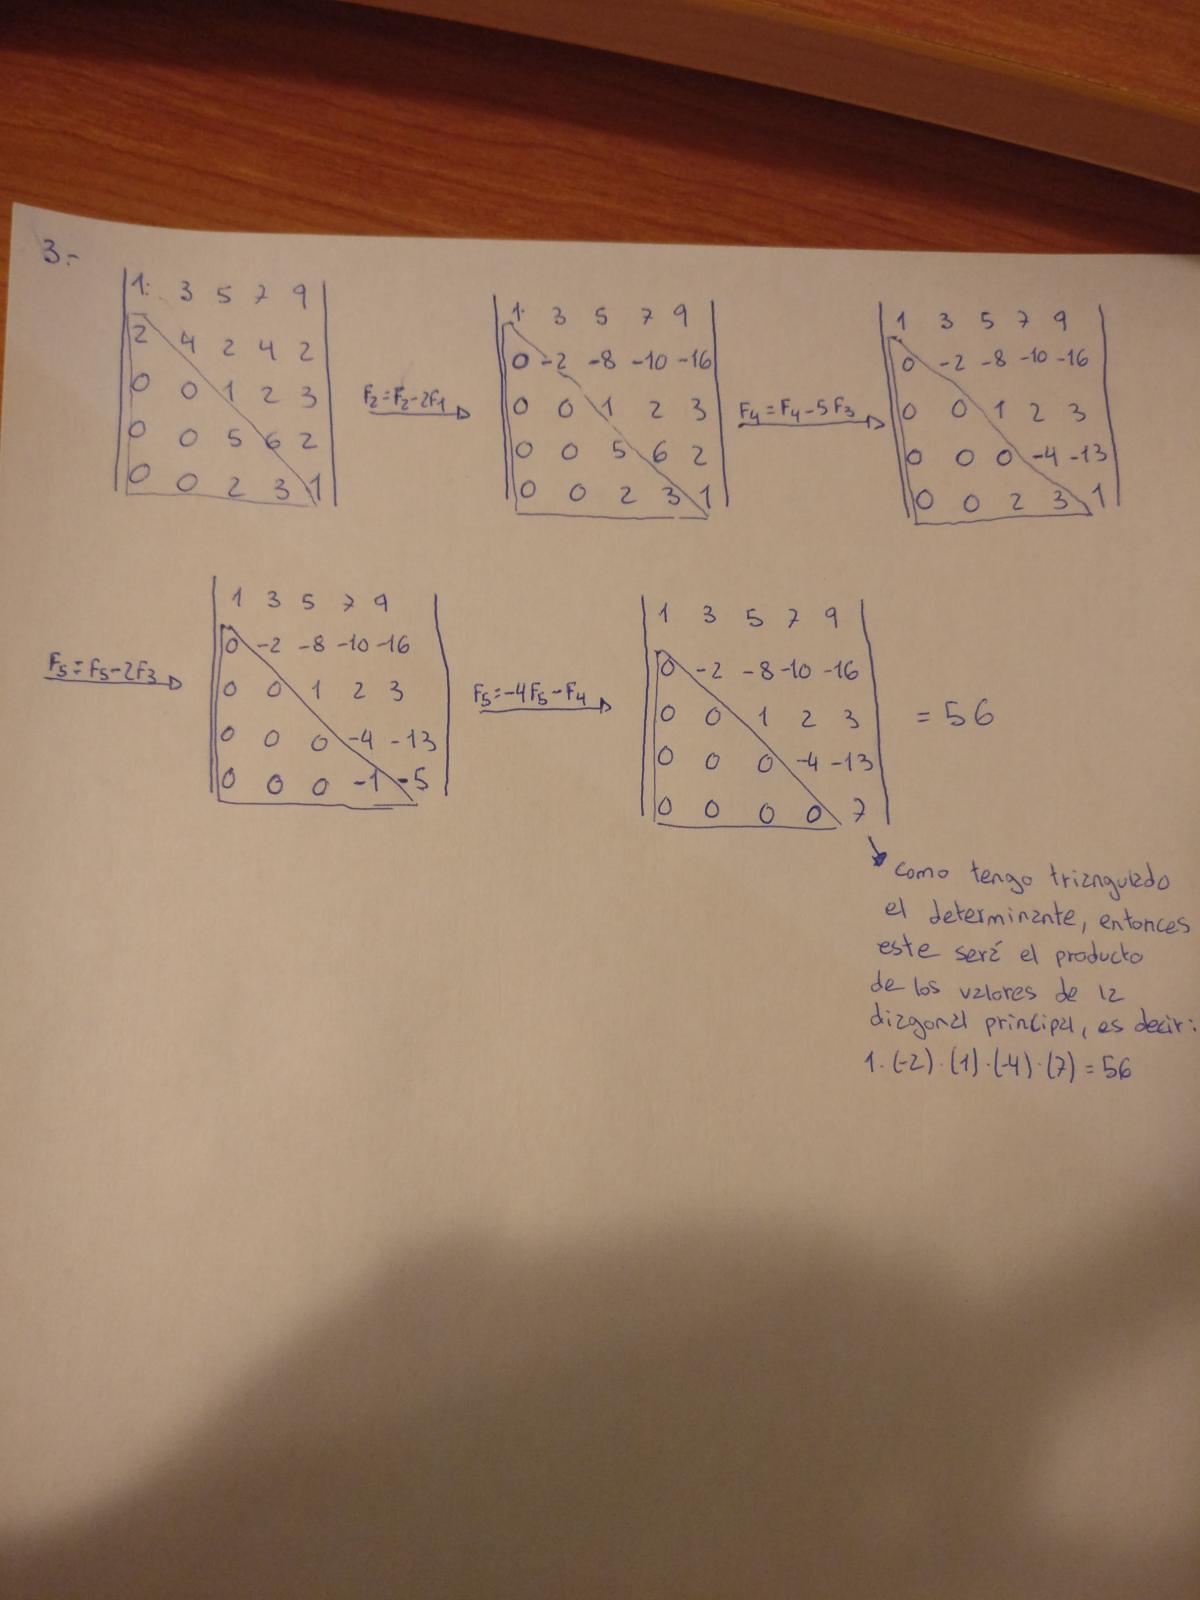 3.-
1 3 5 7 9
2 4 2 4 2
0 0 1 2 3
0 0 5 6 2
0 0 2 3 1
F2=F2-2F1
1 3 5 7 9
0 -2 -8 -10 -16
0 0 1 2 3
0 0 5 6 2
0 0 2 3 1
F4=F4-5F3
1 3 5 7 9
0 -2 -8 -10 -16
0 0 1 2 3
0 0 0 -4 -13
0 0 2 3 1
F5=F5-2F3
1 3 5 7 9
0 -2 -8 -10 -16
0 0 1 2 3
0 0 0 -4 -13
0 0 0 -1 -5
F5=-4F5-F4
1 3 5 7 9
0 -2 -8 -10 -16
0 0 1 2 3
0 0 0 -4 -13
0 0 0 0 7
= 56
como tengo triangulado
el determinante, entonces
este será el producto
de los valores de la
diagonal principal, es decir:
1·(-2)·(1)·(-4)·(7)=56